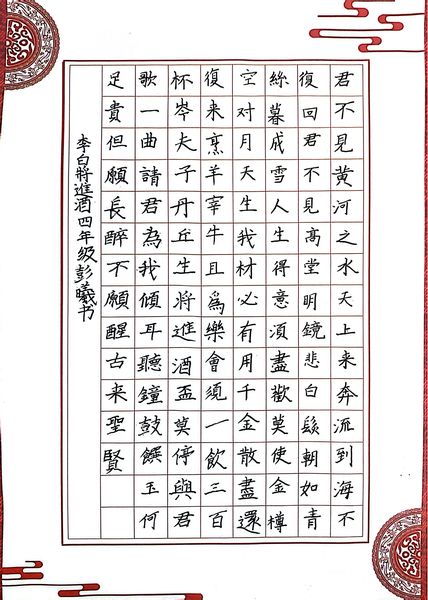 君不見黄河之水天上来奔流到海不
復回君不見高堂明鏡悲白髮朝如青
絲暮成雪人生得意須盡歡莫使金樽
空对月天生我材必有用千金散盡還
復来烹羊宰牛且爲樂會須一飲三百
杯岑夫子丹丘生將進酒盃莫停與君
歌一曲請君為我傾耳聽鐘鼓饌玉何
足貴但願長醉不願醒古来聖賢
李白將進酒四年级彭曦书